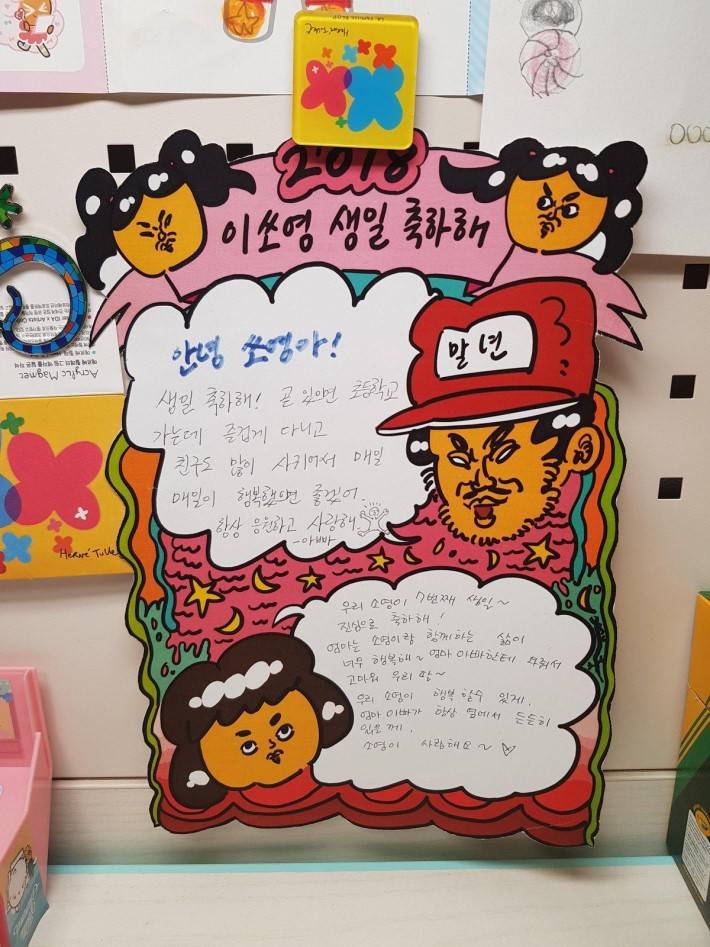 LA FAMILLE BLOP
Hervé Tullet
000
2018
이쏘영 생일 축하해
안녕 쏘영아!
말년
생일 축하해! 곧 있으면 초등학교
가는데 즐겁게 다니고
친구도 많이 사귀어서 매일
매일이 행복했으면 좋겠어.
항상 응원하고 사랑해
-아빠-
Acrylic Magnet
Hervé Tullet
우리 소영이 7번째 생일~
진심으로 축하해!
엄마는 소영이랑 함께하는 삶이
너무 행복해~ 엄마 아빠한테 와줘서
고마워 우리 딸~
우리 소영이 행복 할수 있게.
엄마 아빠가 항상 옆에서 든든히
있을께.
소영이 사랑해요~